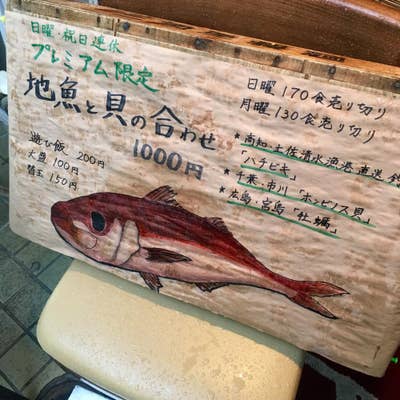 日曜・祝日連休
プレミアム限定
地魚と貝の合わせ
1000円
遊び飯 200円
大盛 100円
替玉 150円
日曜 170食売り切り
月曜 130食売り切り
★高知・土佐清水漁港直送
「ハチビキ」
★千葉・市川「ホンビノス貝」
★広島・宮島「牡蠣」